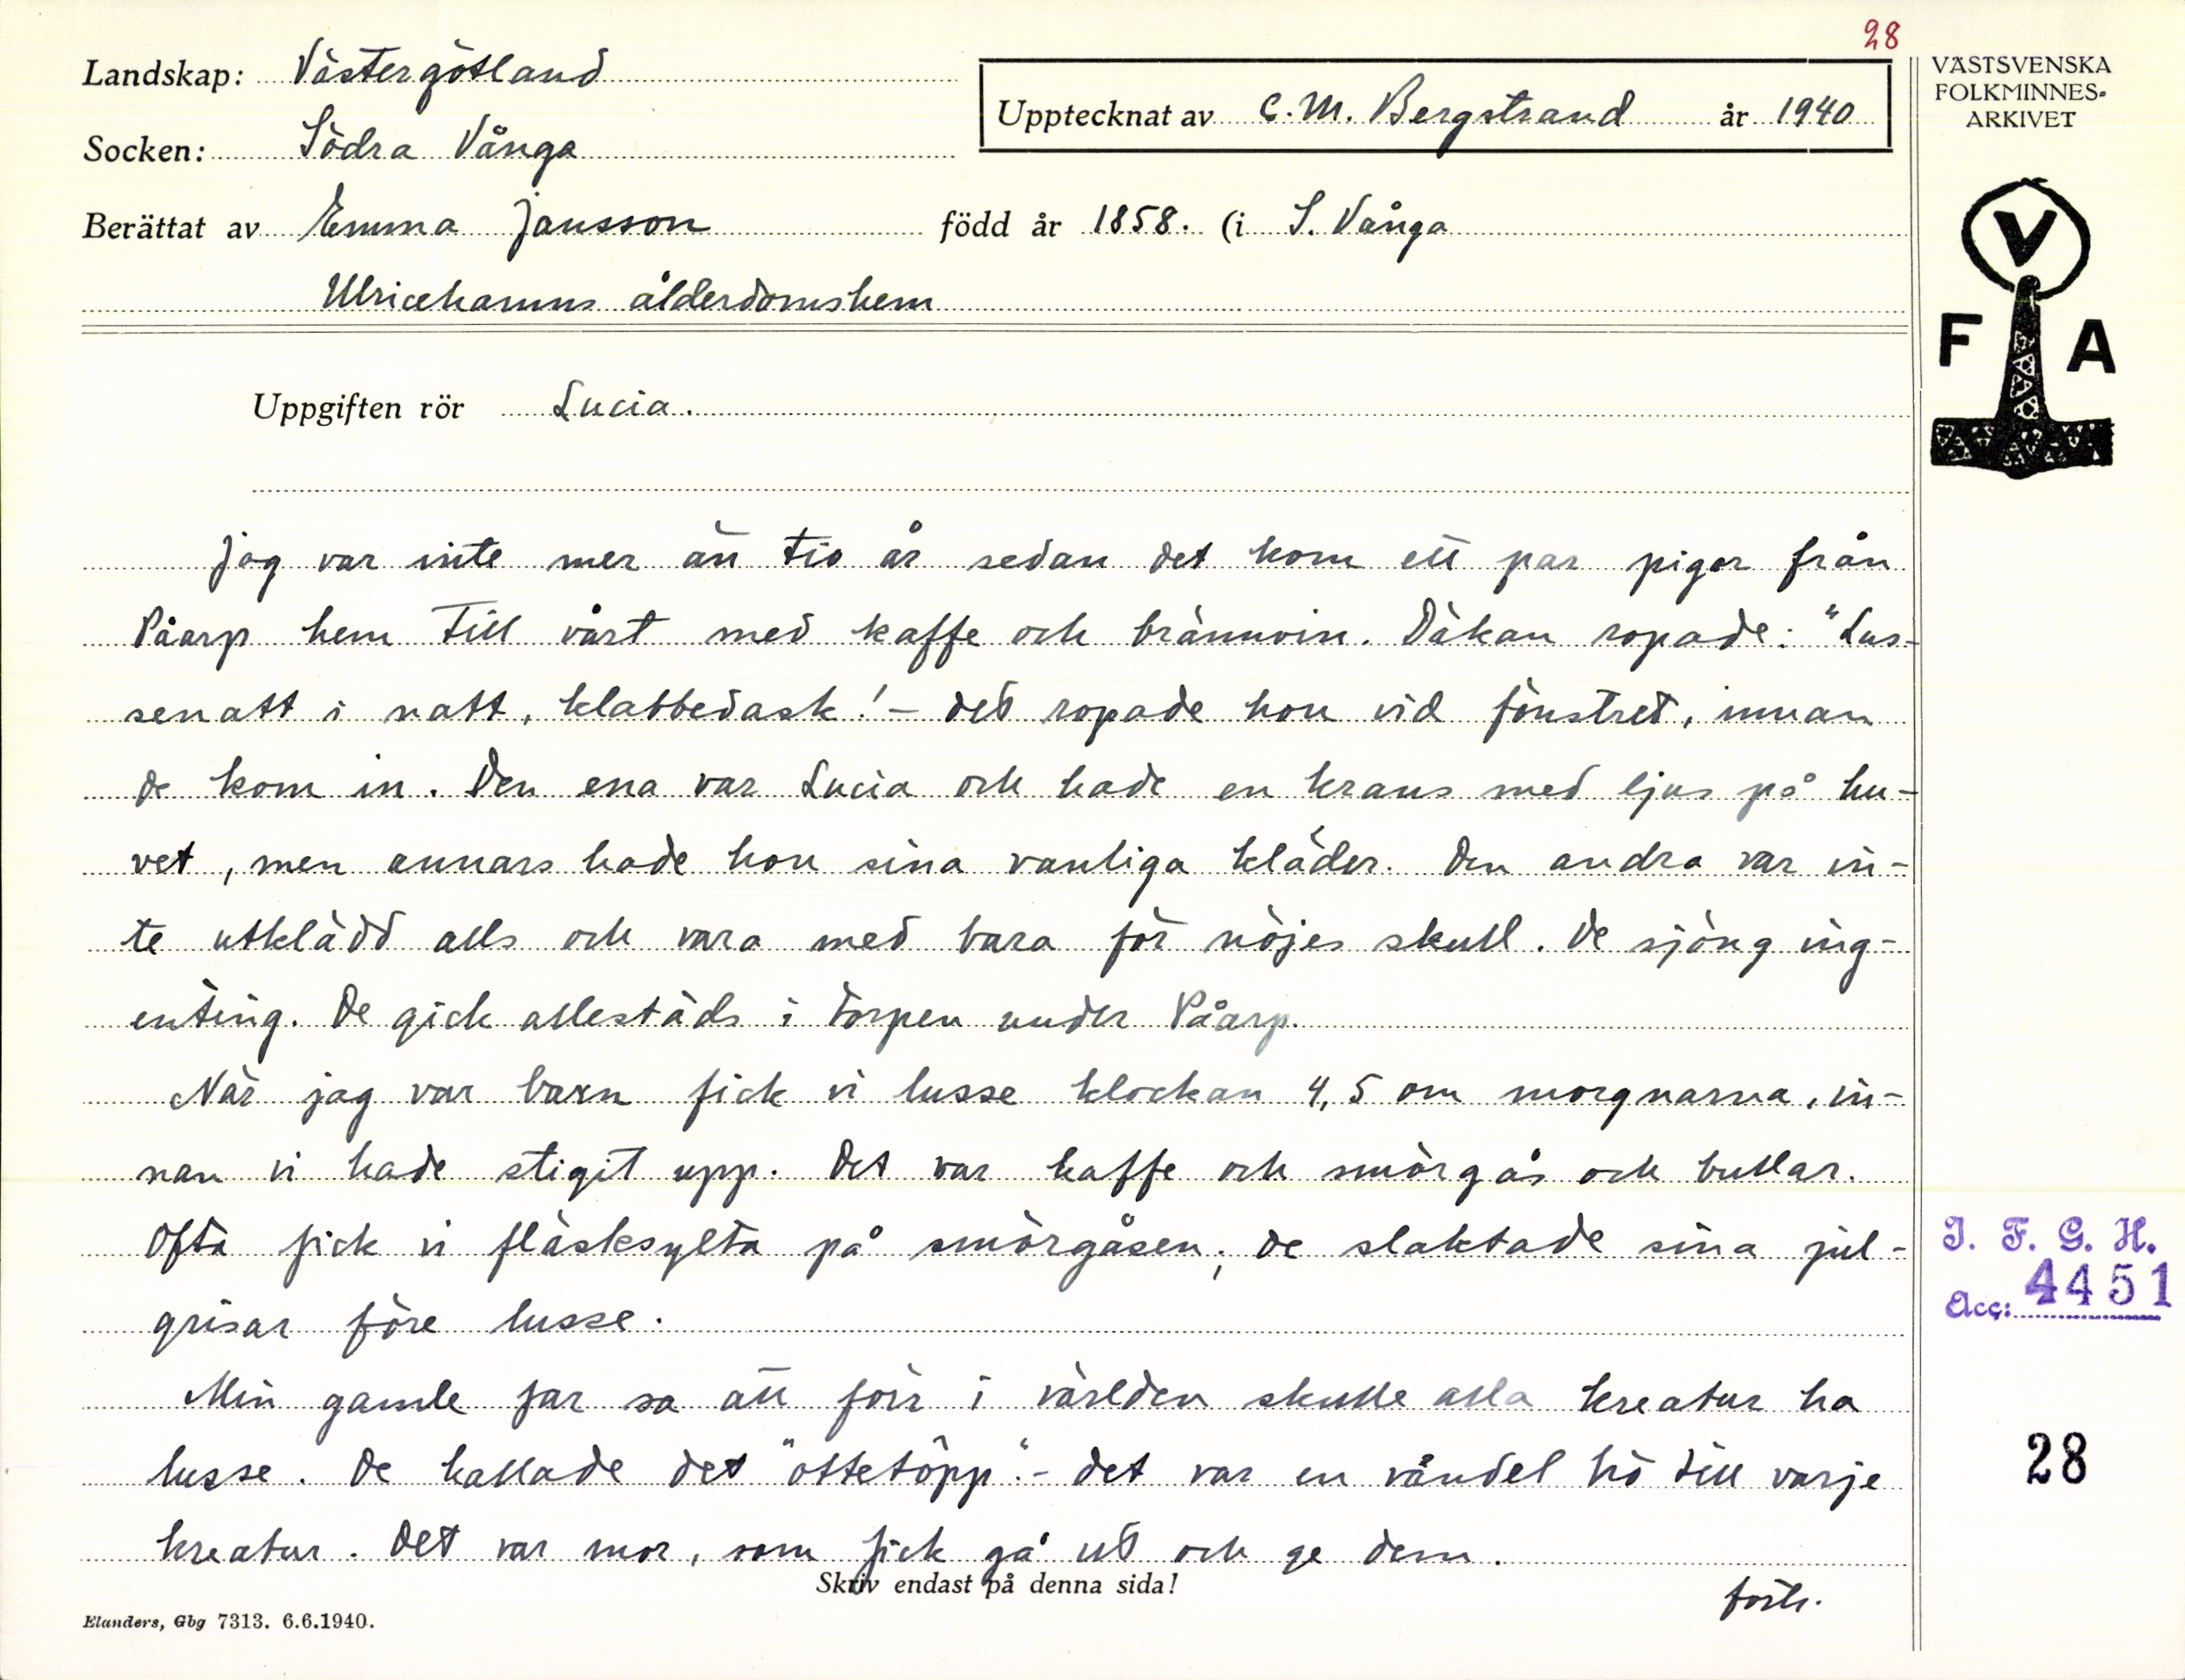 28
Landskap: Västergötland
Socken: Södra Vånga
Upptecknat av C. M. Bergstrand år 1940
Berättat av Emma Jansson född år 1858. (i S. Vånga
Ulricehamns ålderdomshem
VÄSTSVENSKA
FOLKMINNES-
ARKIVET
V
F A
Uppgiften rör Lucia.
Jag var inte mer än tio år sedan det kom ett par pigor från
Påarp hem till vårt med kaffe och brännvin. Däkan ropade: "Lus-
senatt i natt, klabbedask! – det ropade hon vid fönstret, innan
de kom in. Den ena var Lucia och hade en krans med ljus på hu-
vet, men annars hade hon sina vanliga kläder. Den andra var in-
te utklädd alls och vara med bara för nöjes skull. De sjöng ing-
enting. De gick allestäds i torpen under Påarp.
När jag var barn fick vi lusse klockan 4, 5 om morgnarna, in-
nan vi hade stigit upp. Det var kaffe och smörgås och bullar.
Ofta fick vi fläsksylta på smörgåsen; de slaktade sina jul-
grisar före lusse.
Min gamle far sa att förr i världen skulle alla kreatur ha
lusse. De kallade det "ottetöpp". – det var en våndel hö till varje
kreatur. Det var mor, som fick gå ut och ge dem.
Skriv endast på denna sida!
forts.
Elanders, Gbg 7313. 6.6.1940.
I. F. G. H.
Acc: 4451
28